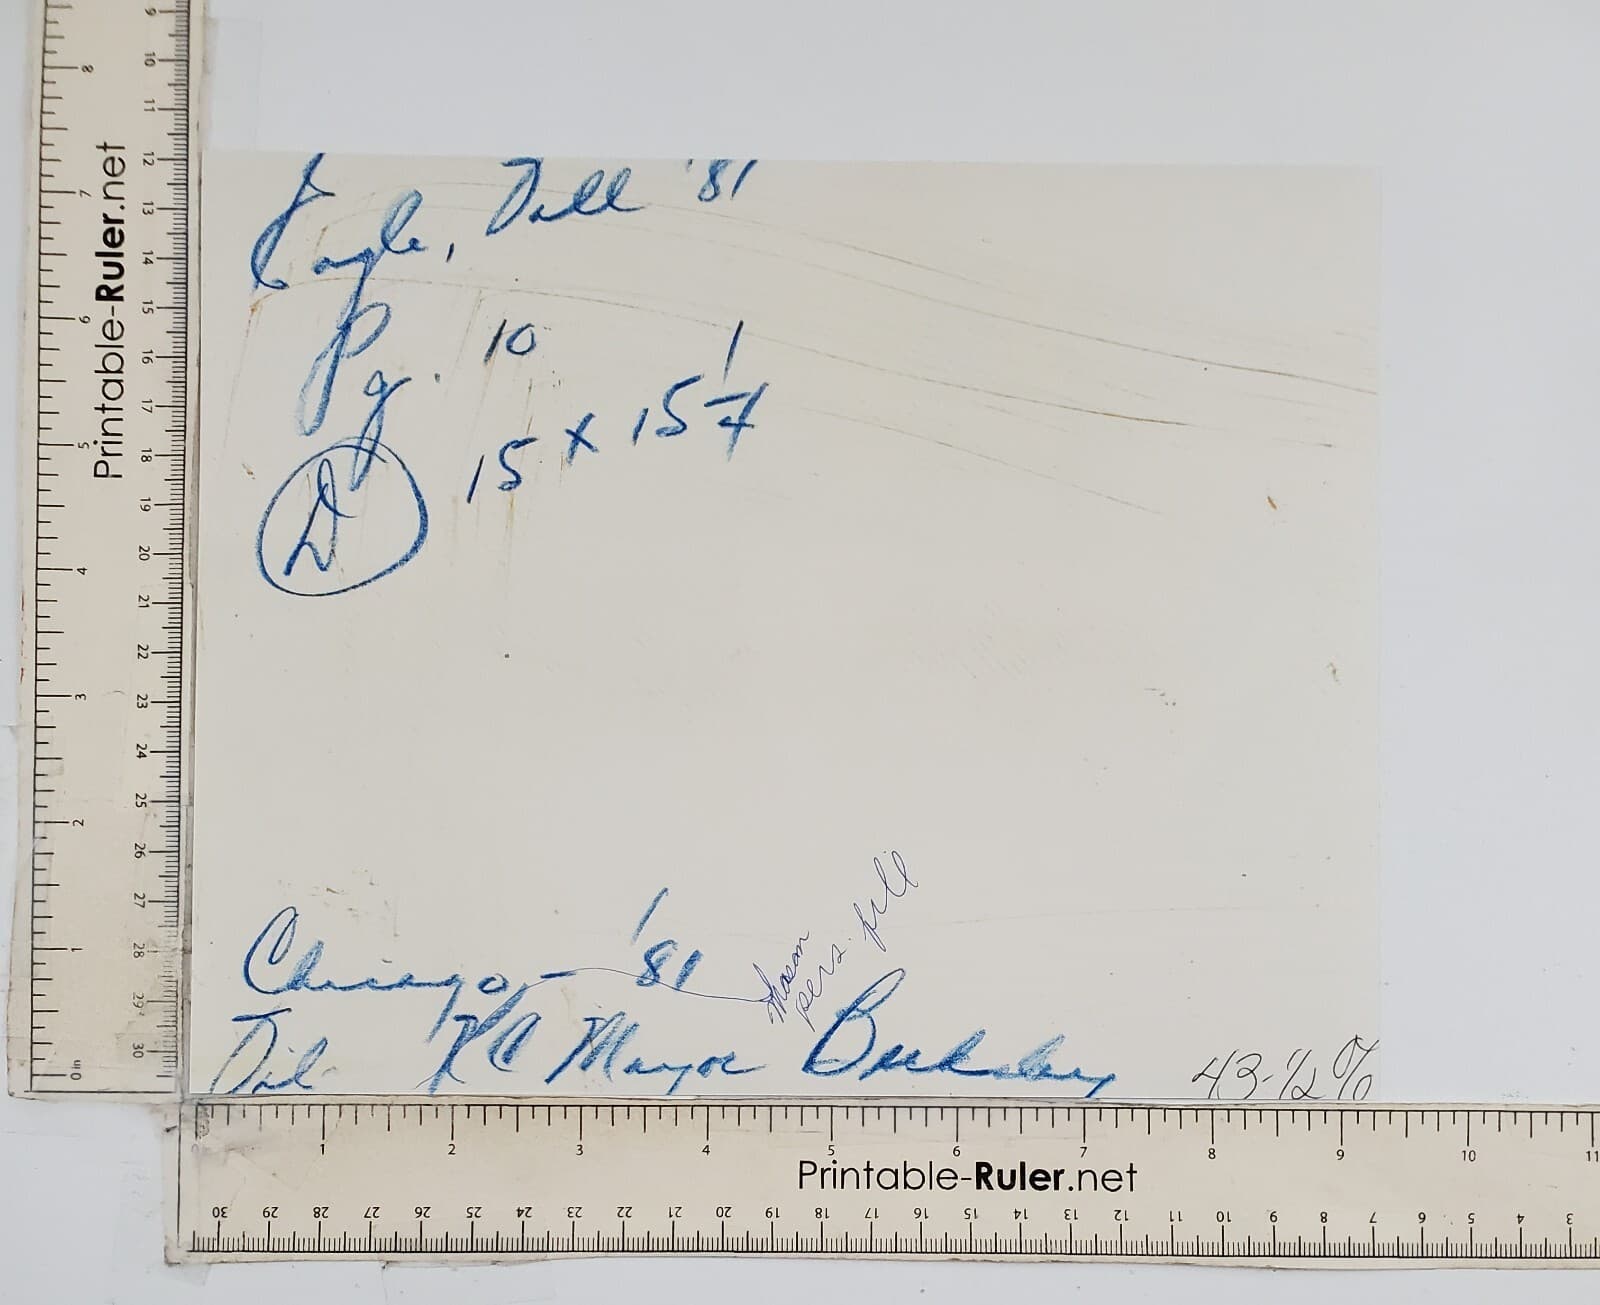 Eagle, Fall '81
Pg. 10
D 15 x 15 1/4
Chicago, - '81
Mason
pers. file
KC Mayor Berkeley
43-1/2%
Printable-Ruler.net
0in 1 2 3 4 5 6 7 8
9 10 11 12 13 14 15 16 17 18 19 20 21 22 23 24 25 26 27 28 29 30
1 2 3 4 5 6 7 8 9 10 11
Printable-Ruler.net
30 29 28 27 26 25 24 23 22 21 20 19 18 17 16 15 14 13 12 11 10 9 8 7 6 5 4 3